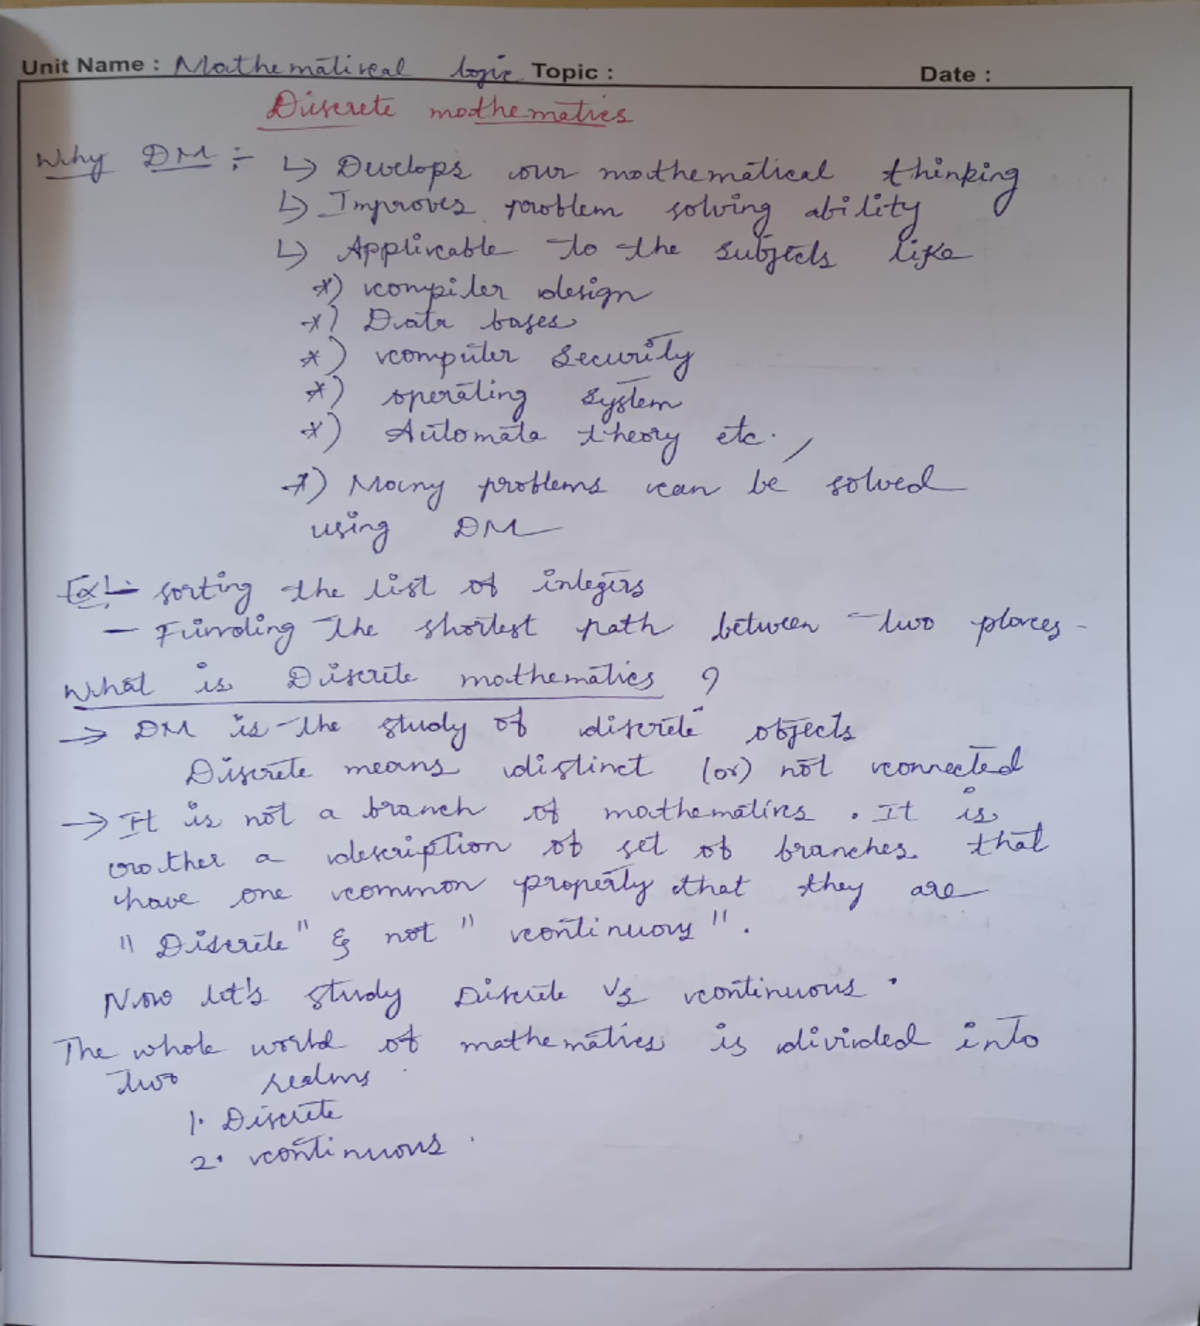 Unit Name : Mathematical logic Topic : Date :
Discrete mathematics
Why DM :- ↳ Develops our mathematical thinking
↳ Improves problem solving ability
↳ Applicable to the subjects like
*) compiler design
*) Data bases
*) computer security
*) operating system
*) Automata theory etc.,
*) Many problems can be solved
using DM
Ex:- sorting the list of integers
- Finding the shortest path between two places -
What is Discrete mathematics ?
→ DM is the study of discrete objects
Discrete means distinct (or) not connected
→ It is not a branch of mathematics . It is
rather a description of set of branches that
have one common property that they are
" Discrete " & not " continuous " .
Now let's study Discrete Vs continuous .
The whole world of mathematics is divided into
two realms
1. Discrete
2. continuous .